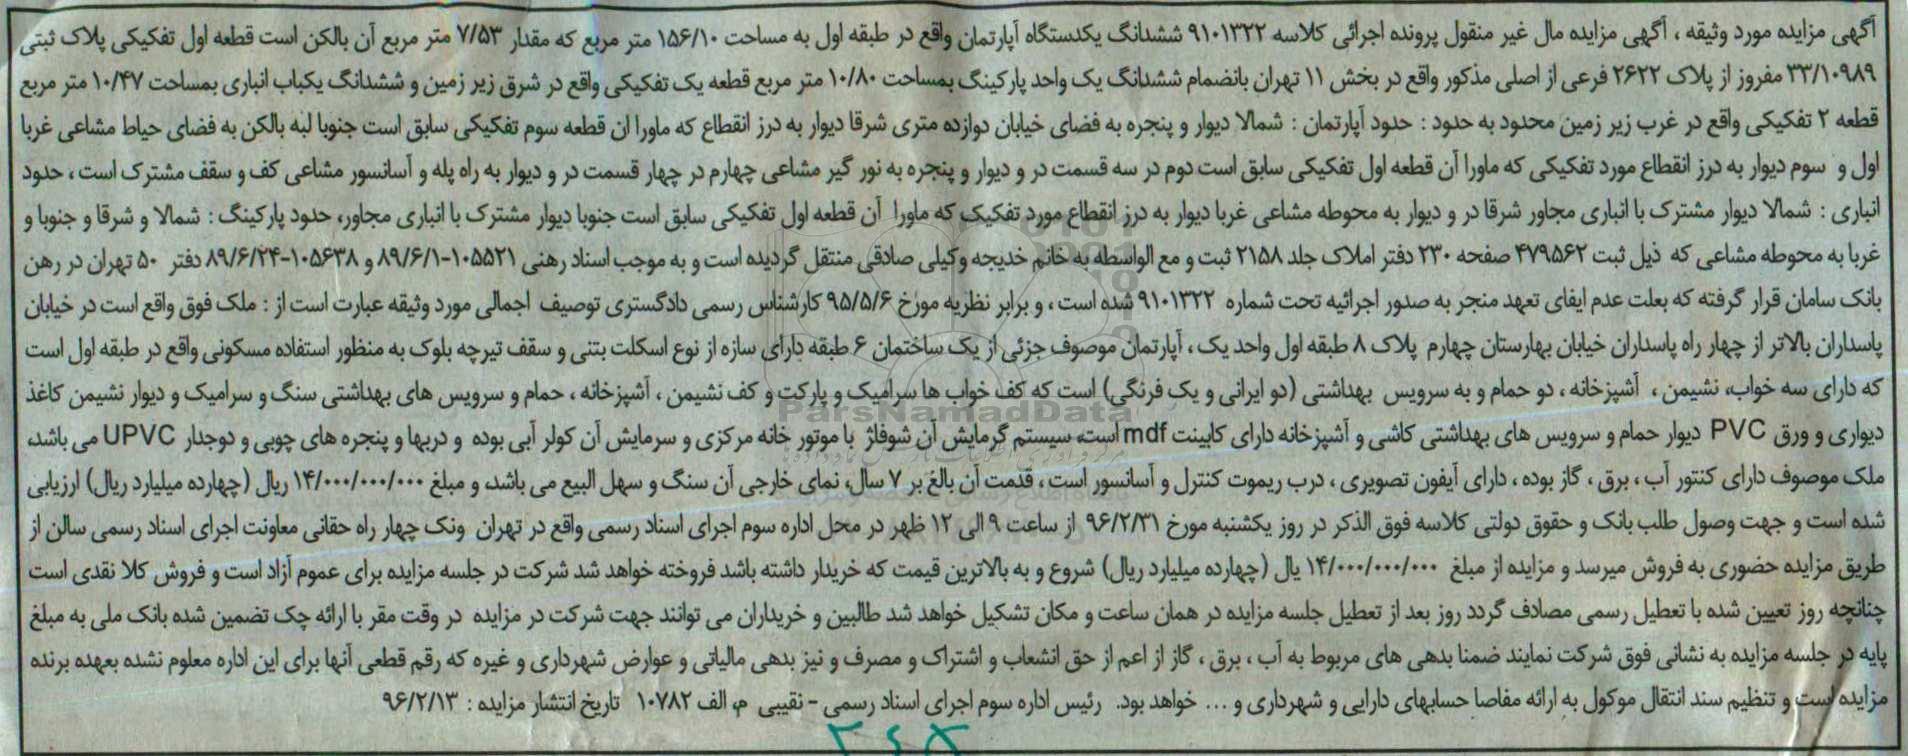 آگهی مزایده مورد وثیقه ، آگهی مزایده مال غیر منقول پرونده اجرائی کلاسه ۹۱۰۱۳۲۲ ششدانگ یکدستگاه آپارتمان واقع در طبقه اول به مساحت ۱۵۶/۱۰ متر مربع که مقدار ۷/۵۳ متر مربع آن بالکن است قطعه اول تفکیکی پلاک ثبتی
۳۳/۱۰۹۸۹ مفروز از پلاک ۲۶۲۲ فرعی از اصلی مذکور واقع در بخش ۱۱ تهران بانضمام ششدانگ یک واحد پارکینگ بمساحت ۱۰/۸۰ متر مربع قطعه یک تفکیکی واقع در شرق زیر زمین و ششدانگ یکباب انباری بمساحت ۱۰/۴۷ متر مربع
قطعه ۲ تفکیکی واقع در غرب زیر زمین محدود به حدود : حدود آپارتمان : شمالا دیوار و پنجره به فضای خیابان دوازده متری شرقا دیوار به درز انقطاع که ماورا ان قطعه سوم تفکیکی سابق است جنوبا لبه بالکن به فضای حیاط مشاعی غربا
اول و سوم دیوار به درز انقطاع مورد تفکیکی که ماورا آن قطعه اول تفکیکی سابق است دوم در سه قسمت در و دیوار و پنجره به نور گیر مشاعی چهارم در چهار قسمت در و دیوار به راه پله و آسانسور مشاعی کف و سقف مشترک است ، حدود
انباری : شمالا دیوار مشترک با انباری مجاور شرقا در و دیوار به محوطه مشاعی غربا دیوار به درز انقطاع مورد تفکیک که ماورا آن قطعه اول تفکیکی سابق است جنوبا دیوار مشترک با انباری مجاور، حدود پارکینگ : شمالا و شرقا و جنوبا و
غربا به محوطه مشاعی که ذیل ثبت ۴۷۹۵۶۲ صفحه ۲۳۰ دفتر املاک جلد ۲۱۵۸ ثبت و مع الواسطه به خانم خدیجه وکیلی صادقی منتقل گردیده است و به موجب اسناد رهنی ۱۰۵۵۲۱-۸۹/۶/۱ و ۱۰۵۶۳۸-۸۹/۶/۲۴ دفتر ۵۰ تهران در رهن
بانک سامان قرار گرفته که بعلت عدم ایفای تعهد منجر به صدور اجرائیه تحت شماره ۹۱۰۱۳۲۲ شده است ، و برابر نظریه مورخ ۹۵/۵/۶ کارشناس رسمی دادگستری توصیف اجمالی مورد وثیقه عبارت است از : ملک فوق واقع است در خیابان
پاسداران بالاتر از چهار راه پاسداران خیابان بهارستان چهارم پلاک ۸ طبقه اول واحد یک ، آپارتمان موصوف جزئی از یک ساختمان ۶ طبقه دارای سازه از نوع اسکلت بتنی و سقف تیرچه بلوک به منظور استفاده مسکونی واقع در طبقه اول است
که دارای سه خواب، نشیمن ، آشپزخانه ، دو حمام و به سرویس بهداشتی (دو ایرانی و یک فرنگی) است که کف خواب ها سرامیک و پارکت و کف نشیمن ، آشپزخانه ، حمام و سرویس های بهداشتی سنگ و سرامیک و دیوار نشیمن کاغذ
دیواری و ورق PVC دیوار حمام و سرویس های بهداشتی کاشی و آشپزخانه دارای کابینت mdf است، سیستم گرمایش آن شوفاژ با موتور خانه مرکزی و سرمایش آن کولر آبی بوده و دربها و پنجره های چوبی و دوجدار UPVC می باشد،
ملک موصوف دارای کنتور آب ، برق ، گاز بوده ، دارای آیفون تصویری ، درب ریموت کنترل و آسانسور است ، قدمت آن بالغ بر ۷ سال، نمای خارجی آن سنگ و سهل البیع می باشد، و مبلغ ۱۴/۰۰۰/۰۰۰/۰۰۰ ریال (چهارده میلیارد ریال) ارزیابی
شده است و جهت وصول طلب بانک و حقوق دولتی کلاسه فوق الذکر در روز یکشنبه مورخ ۹۶/۲/۳۱ از ساعت ۹ الی ۱۲ ظهر در محل اداره سوم اجرای اسناد رسمی واقع در تهران ونک چهار راه حقانی معاونت اجرای اسناد رسمی سالن از
طریق مزایده حضوری به فروش میرسد و مزایده از مبلغ ۱۴/۰۰۰/۰۰۰/۰۰۰ یال (چهارده میلیارد ریال) شروع و به بالاترین قیمت که خریدار داشته باشد فروخته خواهد شد شرکت در جلسه مزایده برای عموم آزاد است و فروش کلا نقدی است
چنانچه روز تعیین شده با تعطیل رسمی مصادف گردد روز بعد از تعطیل جلسه مزایده در همان ساعت و مکان تشکیل خواهد شد طالبین و خریداران می توانند جهت شرکت در مزایده در وقت مقر با ارائه چک تضمین شده بانک ملی به مبلغ
پایه در جلسه مزایده به نشانی فوق شرکت نمایند ضمنا بدهی های مربوط به آب ، برق ، گاز از اعم از حق انشعاب و اشتراک و مصرف و نیز بدهی مالیاتی و عوارض شهرداری و غیره که رقم قطعی آنها برای این اداره معلوم نشده بعهده برنده
مزایده است و تنظیم سند انتقال موکول به ارائه مفاصا حسابهای دارایی و شهرداری و ... خواهد بود. رئیس اداره سوم اجرای اسناد رسمی - نقیبی م الف ۱۰۷۸۲ تاریخ انتشار مزایده : ۹۶/۲/۱۳
ParsNamadData